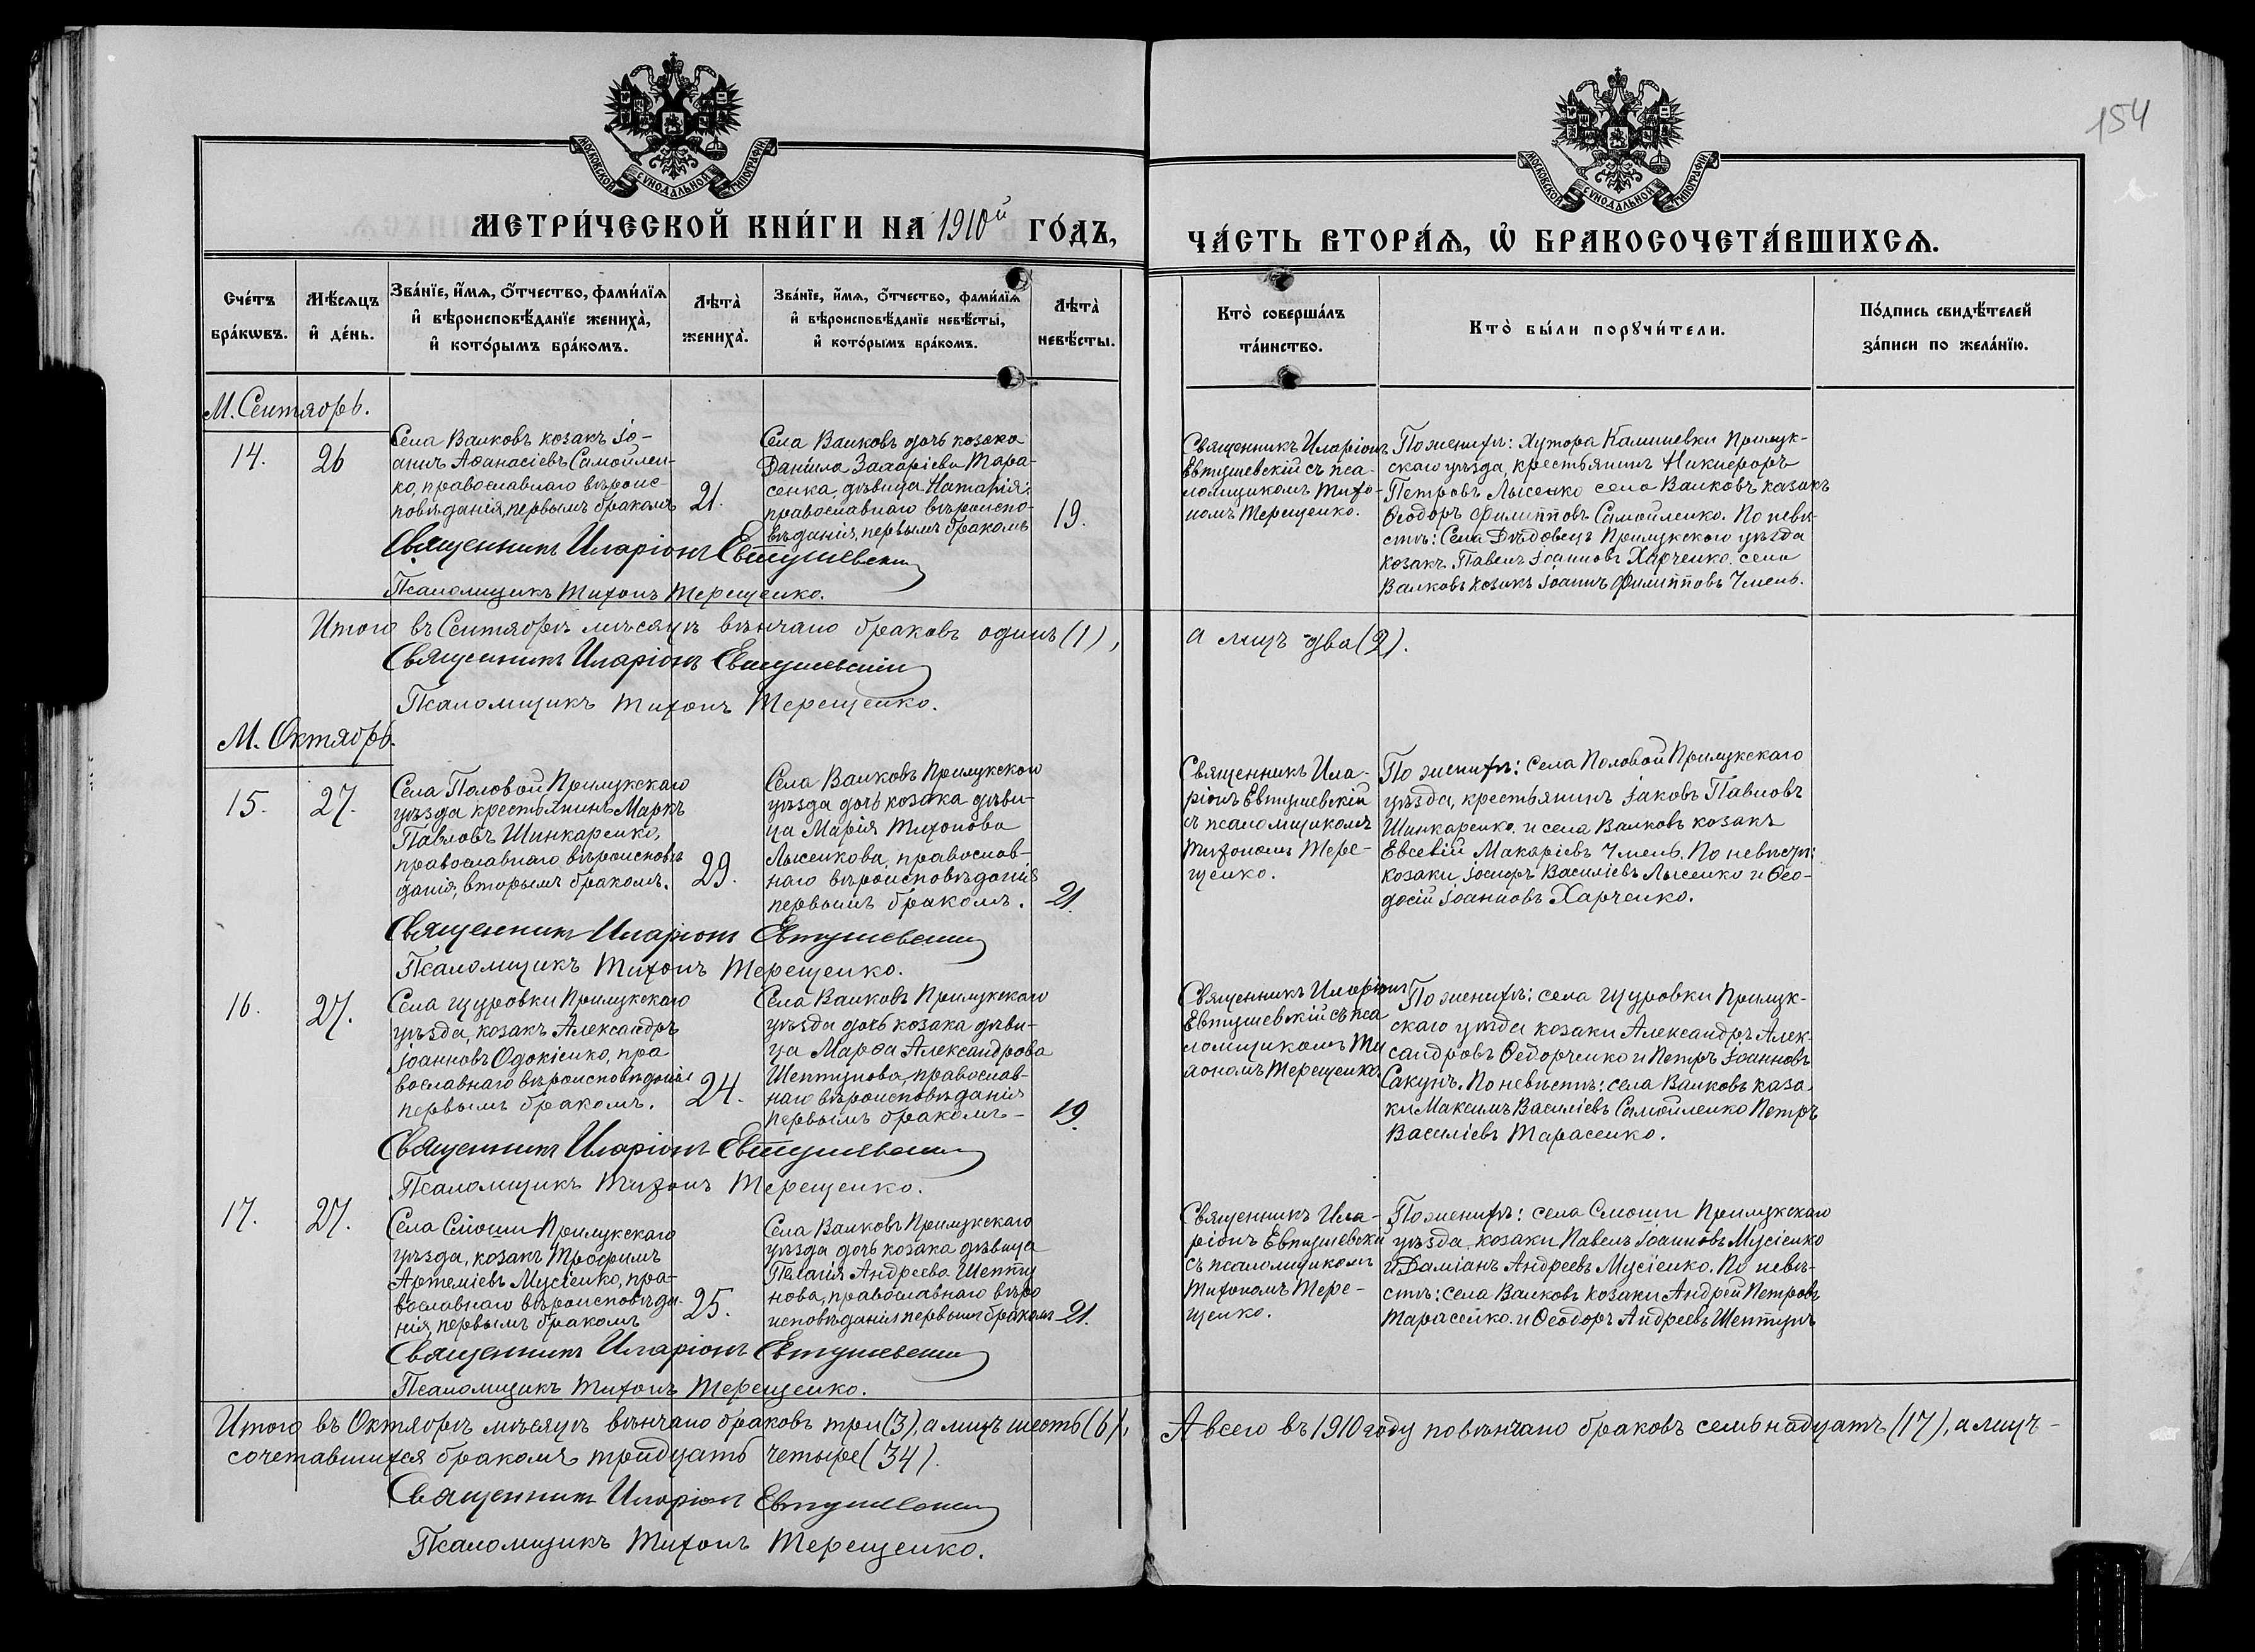 154
МОСКОВСКОЙ СѴНОДАЛЬНОЙ ТИПОГРАФІИ
МОСКОВСКОЙ СѴНОДАЛЬНОЙ ТИПОГРАФІИ
МЕТРИ́ЧЕСКОЙ КНИ́ГИ НА 1910й ГО́ДЪ,
ЧА́СТЬ ВТОРА́Ѧ, Ѽ БРАКОСОЧЕТА́ВШИХСѦ.
Сче́тъ
бра́кѡвъ.
Мѣ́сѧцъ
и҆ де́нь.
Зва́нїе, и҆́мѧ, ѻ҆́тчество, фами́лїѧ
и҆ вѣроисповѣ́данїе жениха̀,
и҆ кото́рымъ бра́комъ.
Лѣта̀
жениха̀.
Зва́нїе, и҆́мѧ, ѻ҆́тчество, фами́лїѧ
и҆ вѣроисповѣ́данїе невѣ́сты,
и҆ кото́рымъ бра́комъ.
Лѣта̀
невѣ́сты.
Кто̀ соверша́лъ
та́инство.
Кто̀ бы́ли порꙋчи́тели.
По́дпись свидѣ́телей
за́писи по жела́нїю.
М. Сентябрь.
14.
26
Села Валковъ козакъ Іо-
аннъ Аѳанасіевъ Самойлен-
ко, православнаго вѣроис-
повѣданія, первымъ бракомъ
21.
Села Валковъ дочь козака
Даніила Захаріева Тара-
сенка, дѣвица Наталія,
православнаго вѣроиспо-
вѣданія, первымъ бракомъ
19.
Священникъ Иларіонъ
Евтушевскій съ пса-
ломщикомъ Тихо-
номъ Терещенко.
По женихѣ: Хутора Калишевки Прилук-
скаго уѣзда, крестьянинъ Никифоръ
Петровъ Лысенко села Валковъ казакъ
Ѳеодоръ Филипповъ Самойленко. По невѣ-
стѣ: Села Дѣдовецъ Прилукскаго уѣзда
козакъ Павелъ Іоанновъ Харченко. села
Валковъ козакъ Іоаннъ Филипповъ Чмель.
Священникъ Иларіонъ Евтушевскій
Псаломщикъ Тихонъ Терещенко.
Итого въ Сентябрѣ мѣсяцѣ вѣнчано браковъ одинъ (1),
а лицъ два (2).
Священникъ Иларіонъ Евтушевскій
Псаломщикъ Тихонъ Терещенко.
М. Октябрь.
15.
27.
Села Половой Прилукскаго
уѣзда крестьянинъ Маркъ
Павловъ Шинкаренко,
православнаго вѣроисповѣ
данія, вторымъ бракомъ.
29.
Села Валковъ Прилукскаго
уѣзда дочь козака дѣви-
ца Марія Тихонова
Лысенкова, православ-
наго вѣроисповѣданія
первымъ бракомъ.
21.
Священникъ Ила-
ріонъ Евтушевскій
съ псаломщикомъ
Тихономъ Тере-
щенко.
По женихѣ: села Половой Прилукскаго
уѣзда, крестьянинъ Іаковъ Павловъ
Шинкаренко. и села Валковъ козакъ
Евсевій Макаріевъ Чмель. По невѣстѣ:
козаки Іосифъ Василіевъ Лысенко и Ѳео-
досій Іоанновъ Харченко.
Священникъ Иларіонъ Евтушевскій
Псаломщикъ Тихонъ Терещенко.
16.
27.
Села Щуровки Прилукскаго
уѣзда, козакъ Александръ
Іоанновъ Одокіенко, пра
вославнаго вѣроисповѣданія
первымъ бракомъ.
24.
Села Валковъ Прилукскаго
уѣзда дочь козака дѣви-
ца Марѳа Александрова
Шептунова, православ-
наго вѣроисповѣданія
первымъ бракомъ-
19.
Священникъ Иларіонъ
Евтушевскій съ пса
ломщикомъ Ти
хономъ Терещенко
По женихѣ: села Щуровки Прилук-
скаго уѣзда козаки Александръ Алек-
сандровъ Ѳедорченко и Петръ Іоанновъ
Сакунъ. По невѣстѣ: села Валковъ каза-
ки Максимъ Василіевъ Самойленко Петръ
Василіевъ Тарасенко.
Священникъ Иларіонъ Евтушевскій
Псаломщикъ Тихонъ Терещенко.
17.
27.
Села Смоши Прилукскаго
уѣзда, козакъ Трофимъ
Артеміевъ Мусіенко, пра-
вославнаго вѣроисповѣда-
нія, первымъ бракомъ
25.
Села Валковъ Прилукскаго
уѣзда дочь козака дѣвица
Пелагія Андреева Шепту
нова, православнаго вѣро
исповѣданія первымъ бракомъ
21.
Священникъ Ила-
ріонъ Евтушевскій
съ псаломщикомъ
Тихономъ Тере-
щенко.
По женихѣ: села Смоши Прилукскаго
уѣзда козаки Павелъ Іоанновъ Мусіенко
и Даміанъ Андреевъ Мусіенко. По невѣ-
стѣ: села Валковъ козаки Андрей Петровъ
Тарасенко. и Ѳеодоръ Андреевъ Шептунъ
Священникъ Иларіонъ Евтушевскій
Псаломщикъ Тихонъ Терещенко.
Итого въ Октябрѣ мѣсяцѣ вѣнчано браковъ три (3), а лицъ шесть (6),
А всего въ 1910 году повѣнчано браковъ семьнадцать (17), а лицъ-
сочетавшихся бракомъ тридцать четыре (34).
Священникъ Иларіонъ Евтушевскій
Псаломщикъ Тихонъ Терещенко.